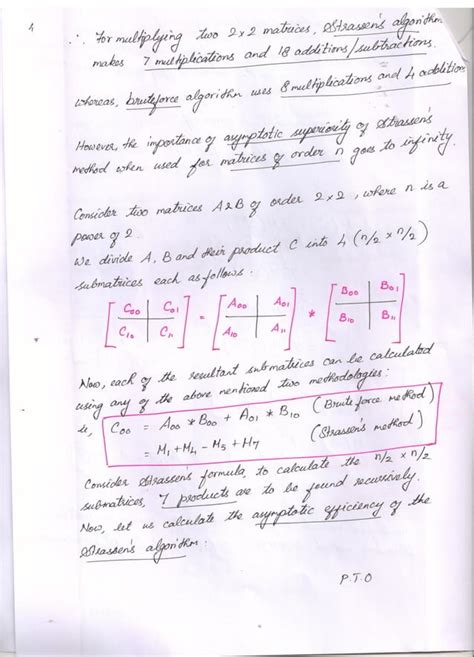 4
∴ For multiplying two 2x2 matrices, Strassen's algorithm
makes 7 multiplications and 18 additions/subtractions.
whereas, bruteforce algorithm uses 8 multiplications and 4 addition
However, the importance of asymptotic superiority of Strassen's
method when used for matrices of order n goes to infinity.
Consider two matrices A & B of order 2x2, where n is a
power of 2.
We divide A, B and their product C into 4 (n/2 x n/2)
submatrices each as follows:
[C00 C01] = [A00 A01] * [B00 B01]
[C10 C11] [A10 A11] [B10 B11]
Now, each of the resultant submatrices can be calculated
using any of the above mentioned two methodologies:
ie, C00 = A00 * B00 + A01 * B10 (Brute force method)
= M1 + M4 - M5 + M7 (Strassen's method)
Consider Strassen's formula, to calculate the n/2 x n/2
submatrices, 7 products are to be found recursively.
Now, let us calculate the asymptotic efficiency of the
Strassen's algorithm:
P.T.O